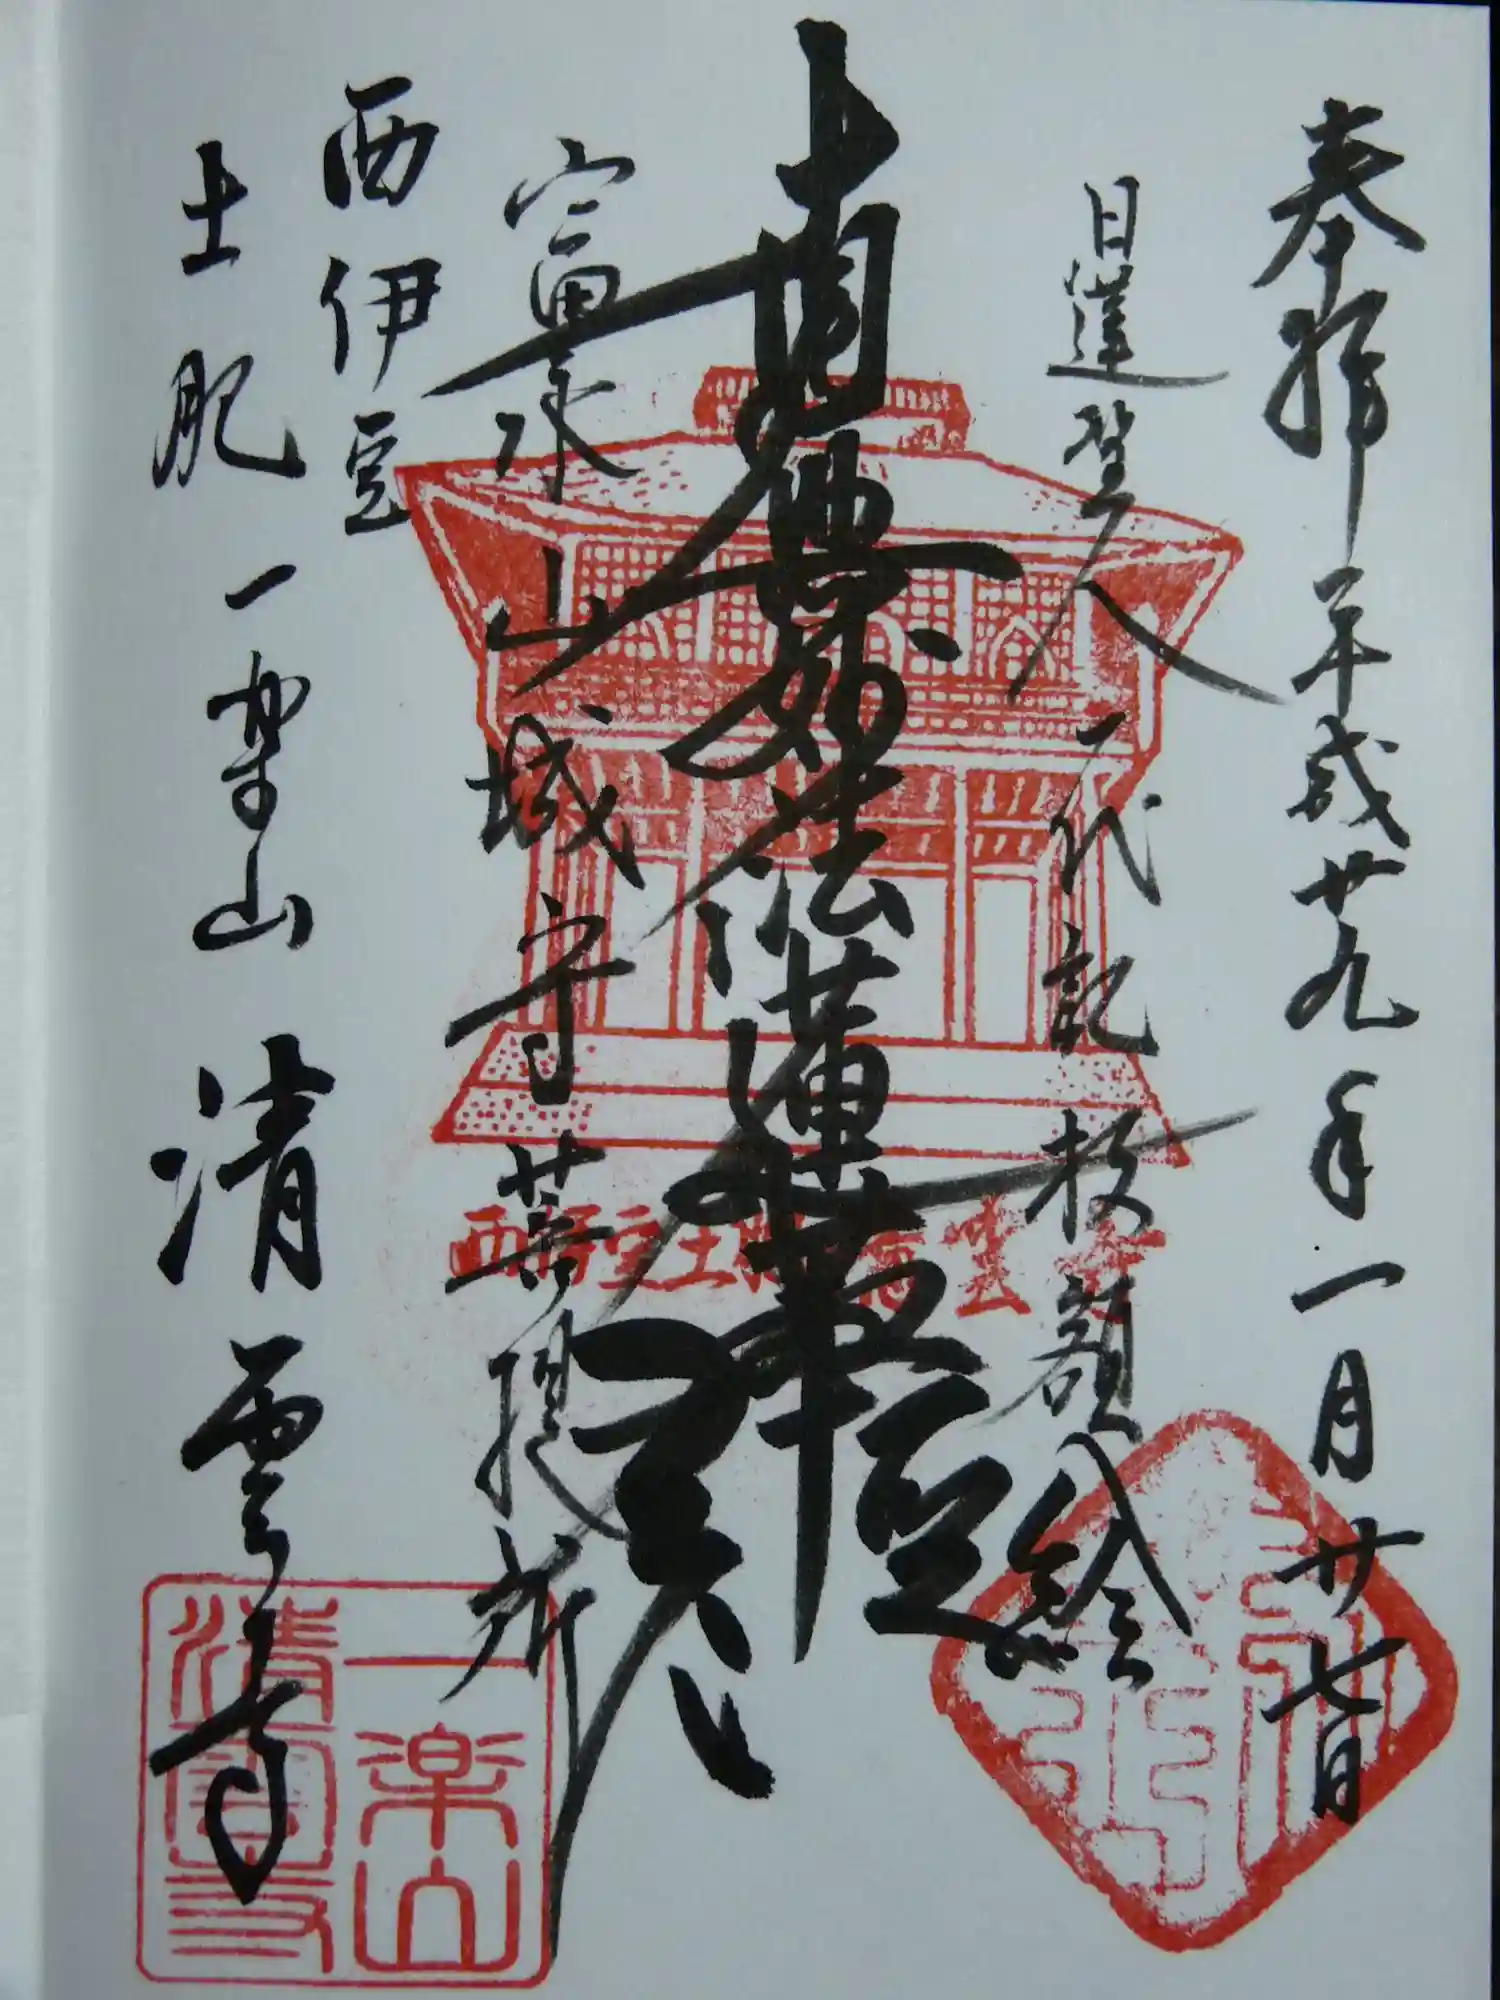 奉拝 平成廿九年一月廿七日
日蓮聖人一代記板額絵
南無妙法蓮華経
富永山城守菩提所
西伊豆
土肥 一楽山 清雲寺
西伊豆土肥 清雲寺
一楽山
清雲寺